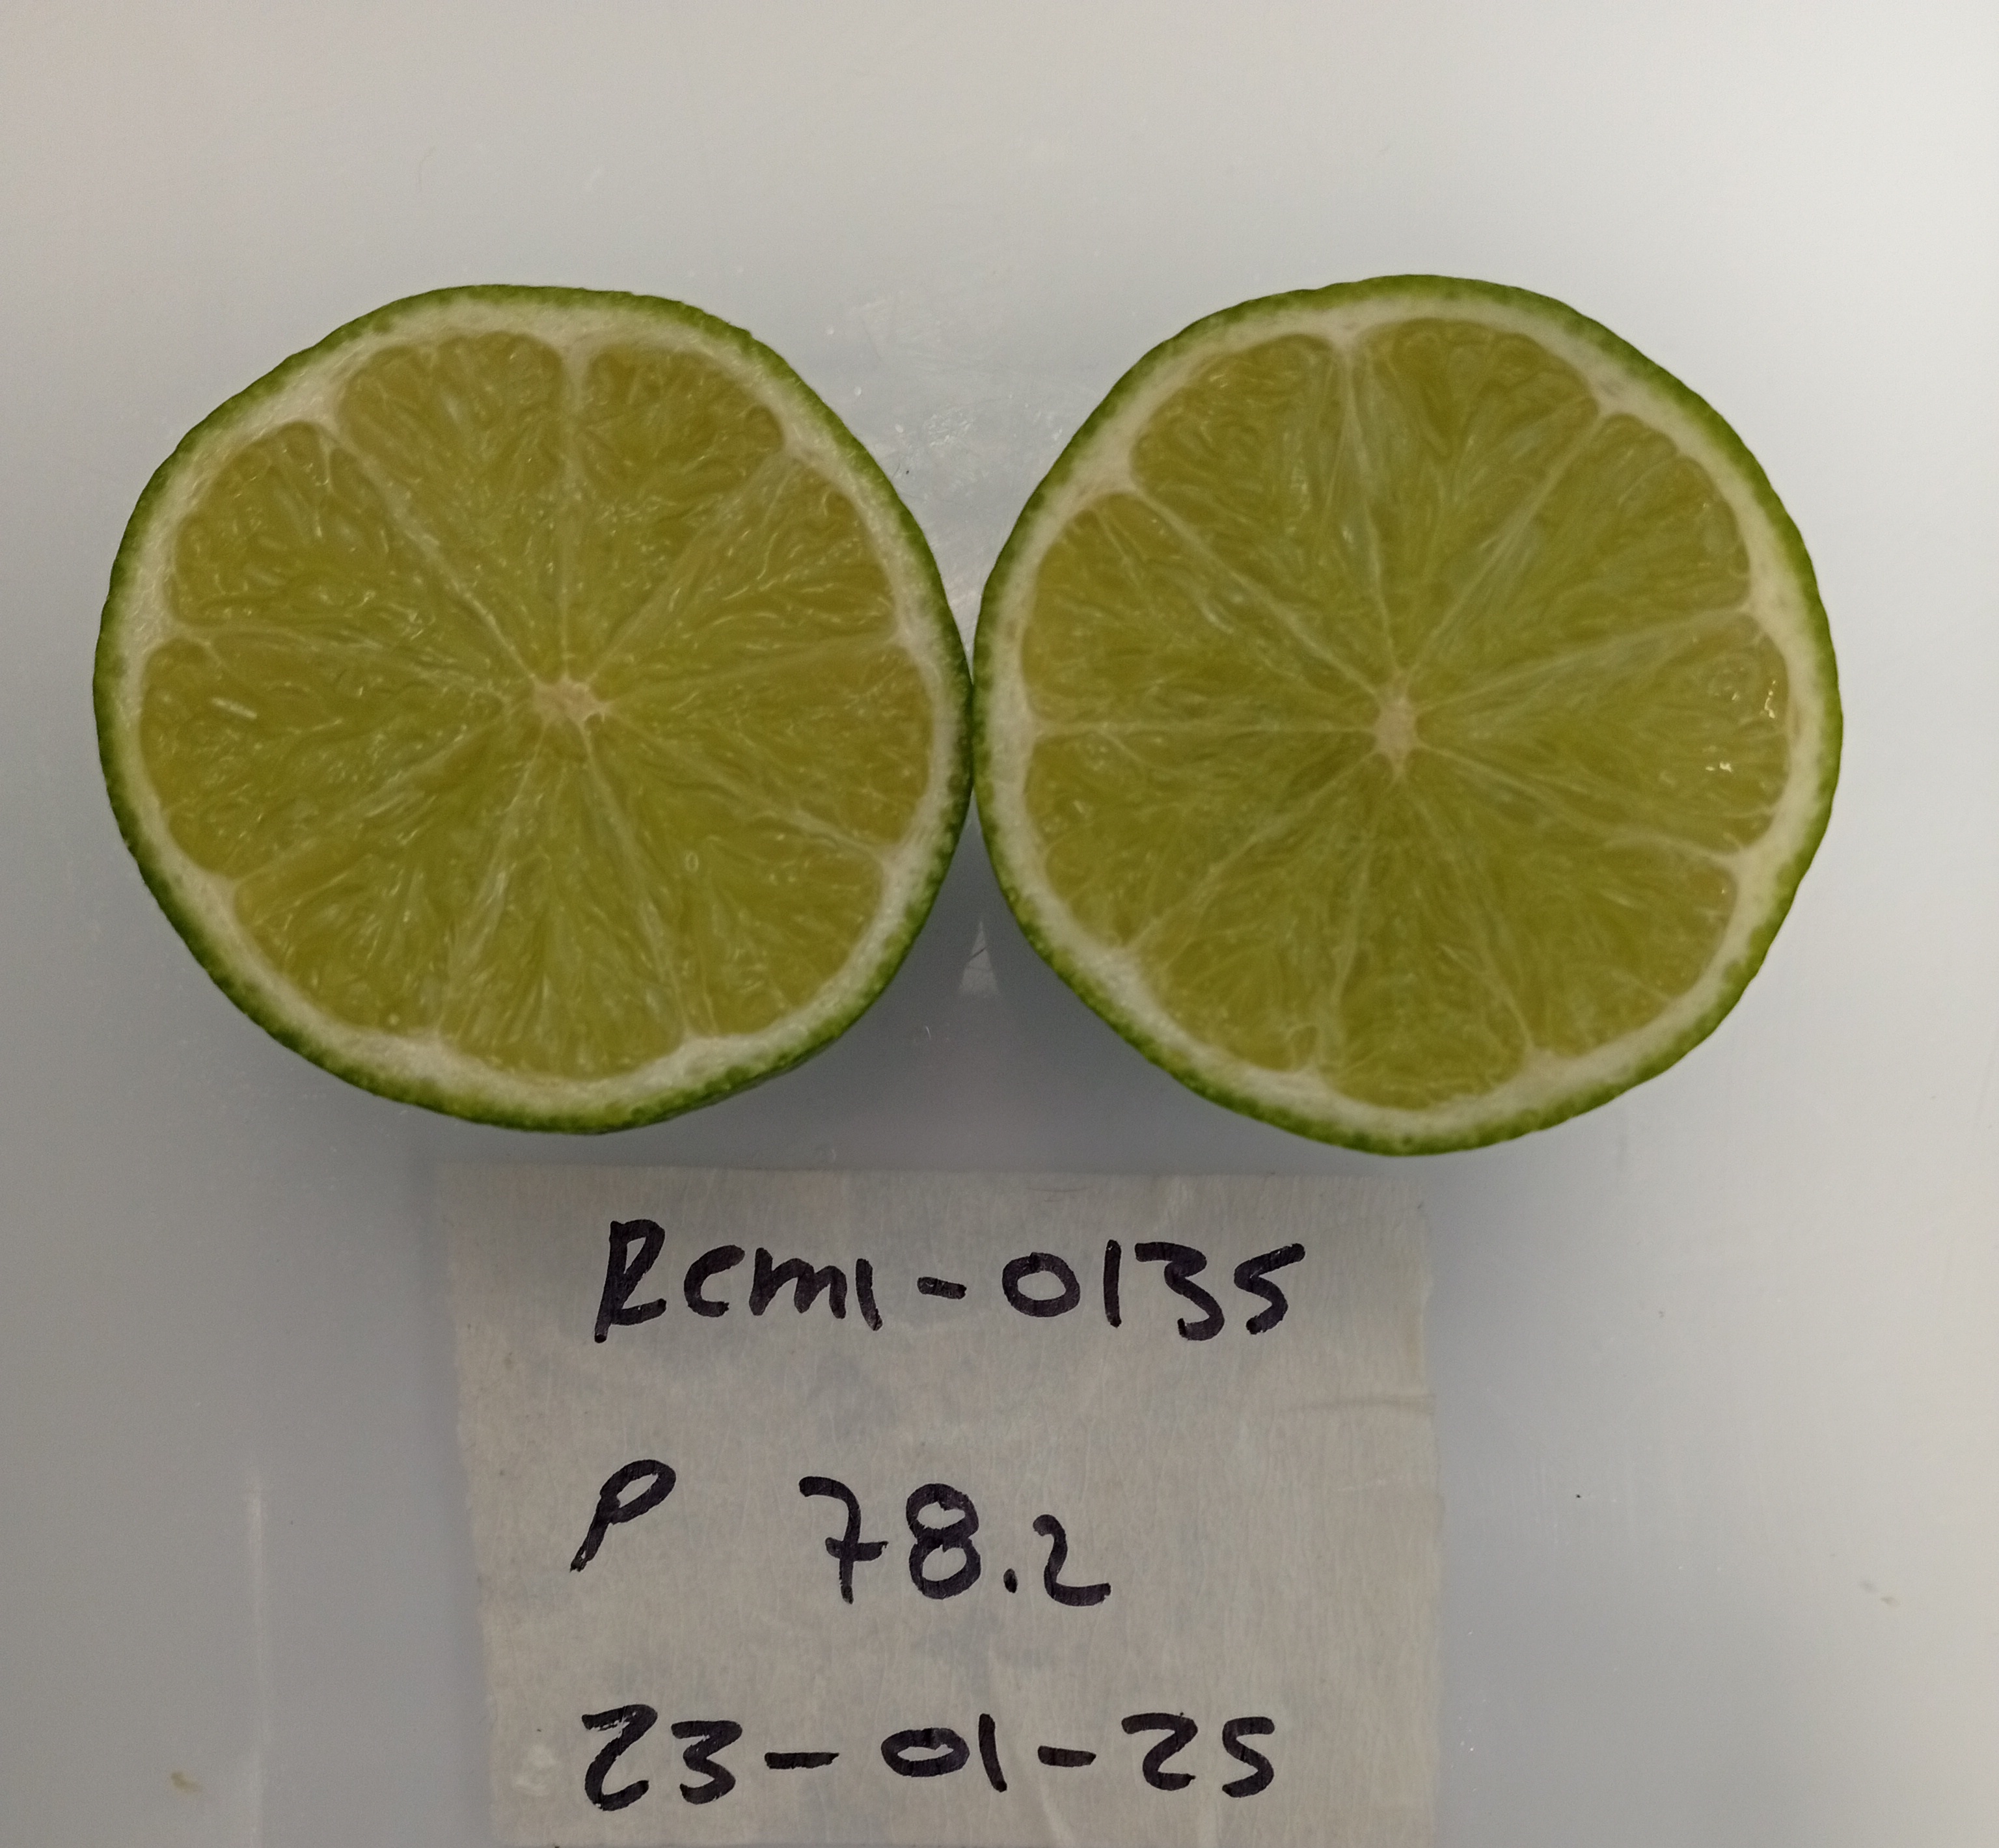 Rcm1-0135
P 78.2
23-01-25